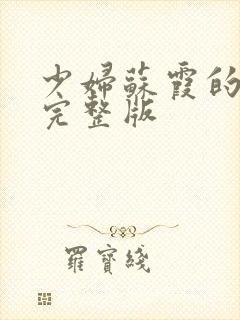 少婦蘇霞的
完整版
羅寶綫